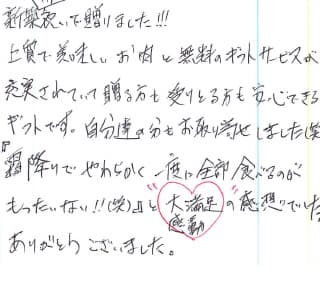 新築祝いで贈りました!!!
上質で美味しいお肉と無料のギフトサービスが
充実されていて贈る方も受けとる方も安心できる
ギフトです。自分達の分もお取り寄せしました(笑)
『霜降りでやわらかく一度に全部食べるのが
もったいない!!(笑)』と"大満足感動"の感想でした
ありがとうございました。